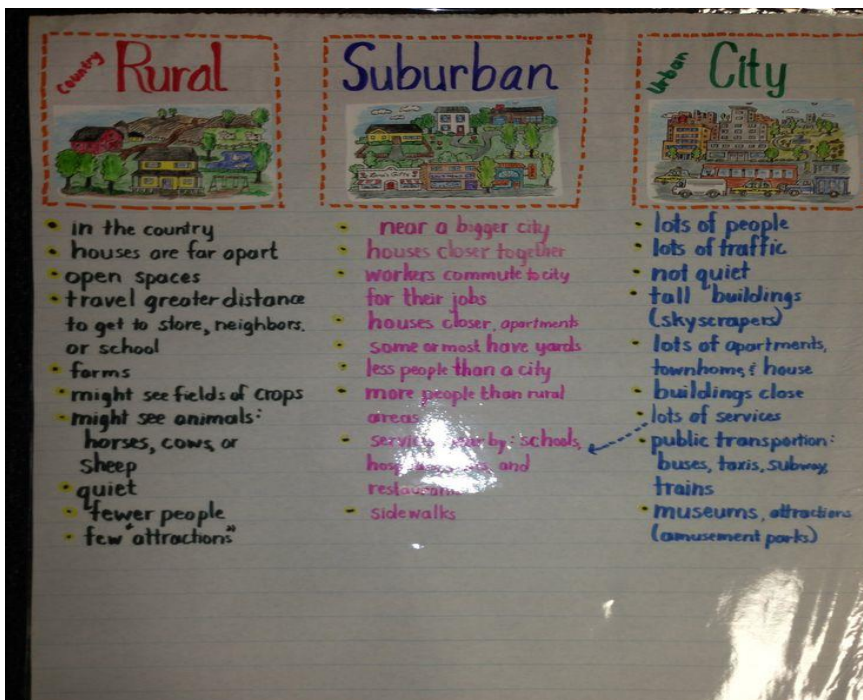 Country Rural
in the country
houses are far apart
open spaces
travel greater distance
to get to store, neighbors.
or school
farms
might see fields of crops
might see animals:
horses, cows, or
sheep
quiet
fewer people
few "attractions"
Suburban
near a bigger city
houses closer together
workers commute to city
for their jobs
houses closer, apartments
some or most have yards
less people than a city
more people than rural
areas
nearby: schools,
and
sidewalks
Urban City
lots of people
lots of traffic
not quiet
tall buildings
(skyscrapers)
lots of apartments,
townhome, & house
buildings close
lots of services
public transportion:
buses, taxis, subway,
trains
museums, attractions
(amusement parks)